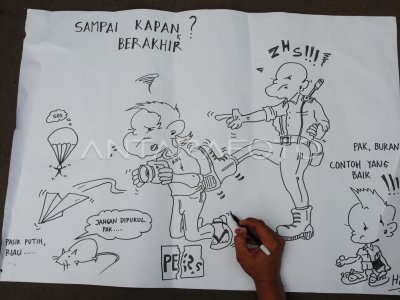 SAMPAI KAPAN ?
BERAKHIR
ZHS!!!
SOS
PAK, BUKAN
CONTOH YANG
BAIK
!!!
JANGAN DIPUKUL
PAK.....
PASIR PUTIH,
RIAU.....
ANTARA FOTO